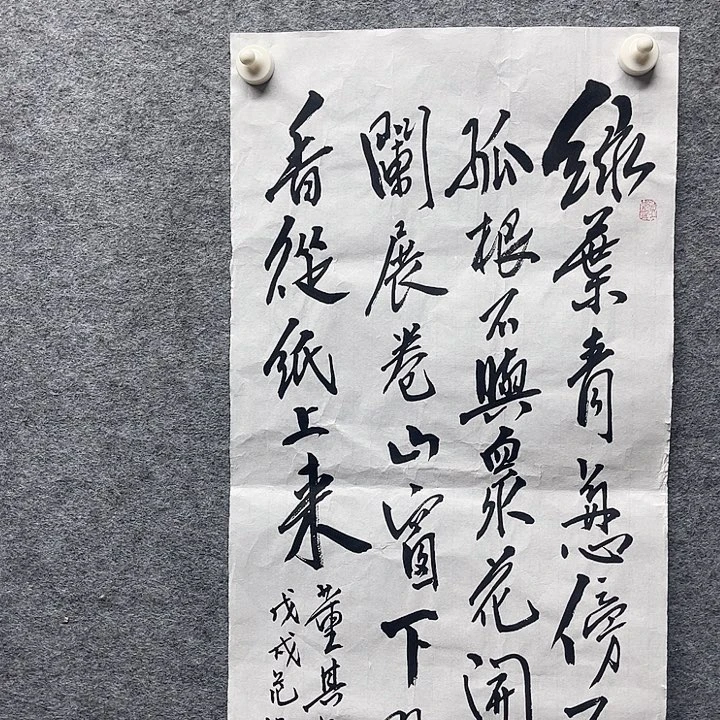 綠葉青葱傍
孤根不與衆花開
闌展卷山窗下
香從紙上来
董其
戊戌